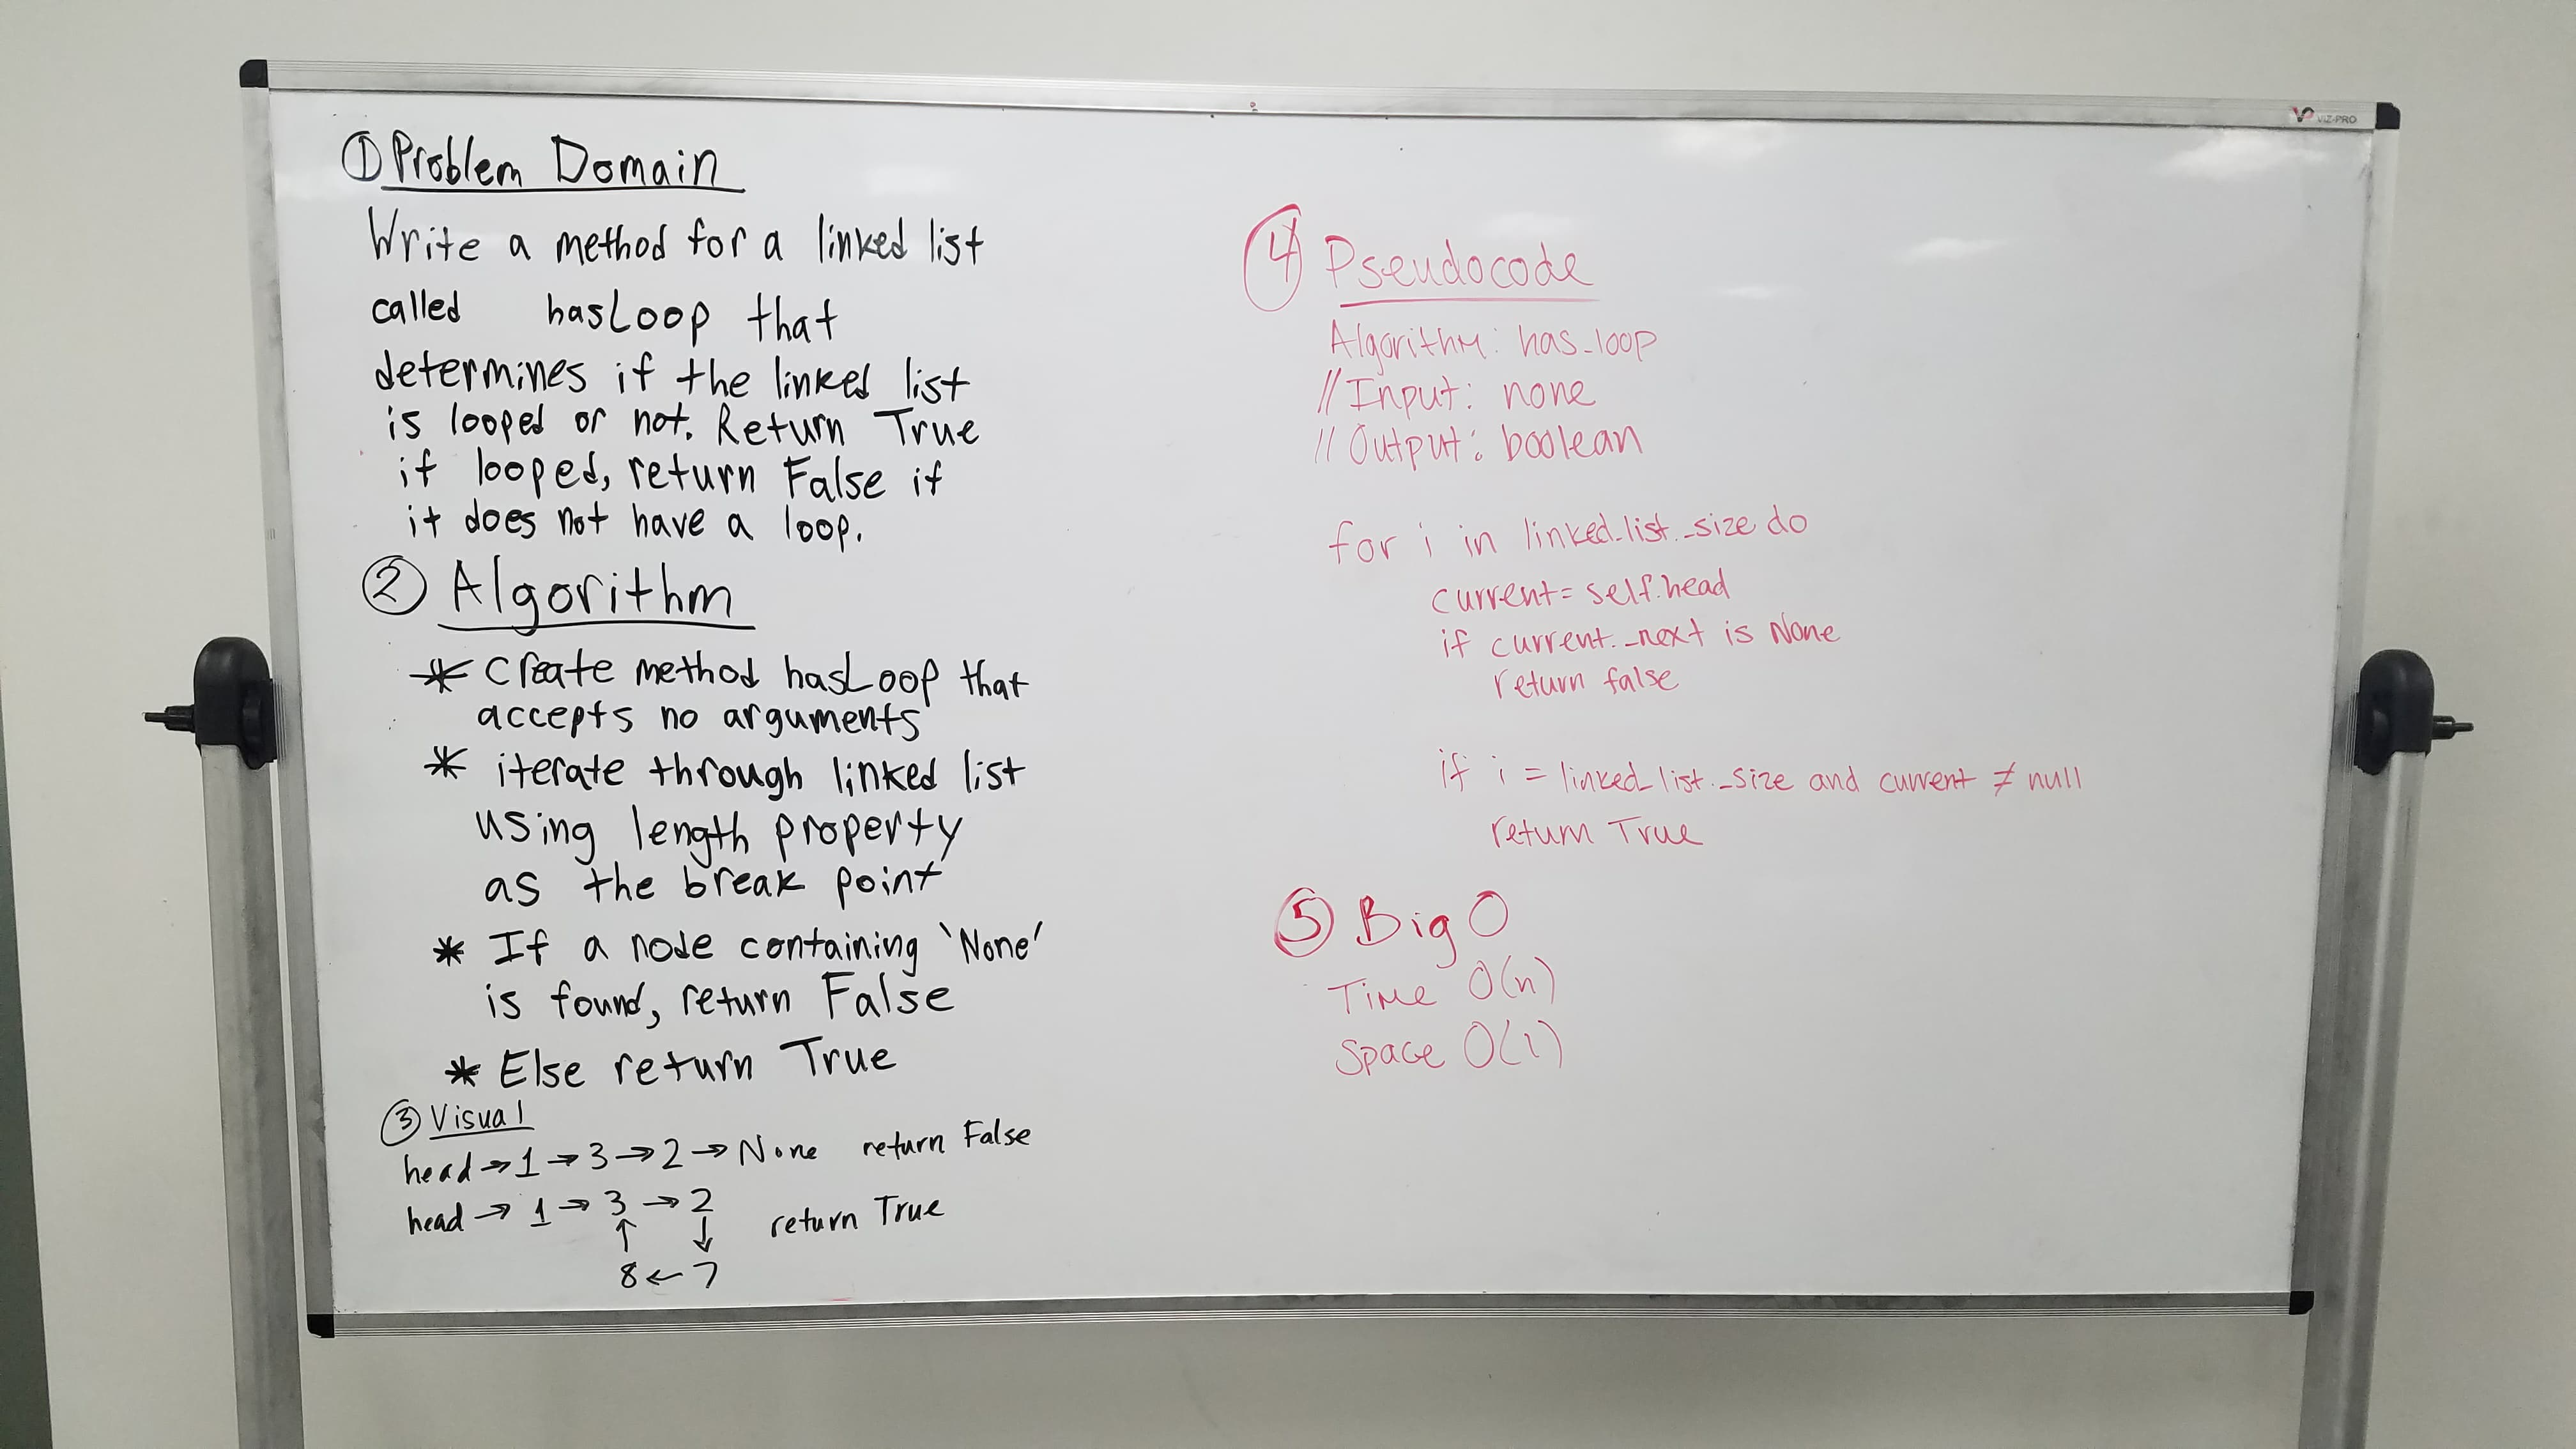 ① Problem Domain
Write a method for a linked list
called hasLoop that
determines if the linked list
is looped or not. Return True
if looped, return False if
it does not have a loop.
② Algorithm
* Create method hasLoop that
accepts no arguments
* iterate through linked list
using length property
as the break point
* If a node containing 'None'
is found, return False
* Else return True
③ Visual
head → 1 → 3 → 2 → None return False
head → 1 → 3 → 2
↑ ↓ return True
8 ← 7
④ Pseudocode
Algorithm: has_loop
// Input: none
// Output: boolean
for i in linked_list._size do
current = self.head
if current._next is None
return false
if i = linked_list._size and current ≠ null
return True
⑤ Big O
Time O(n)
Space O(1)
VIZ-PRO